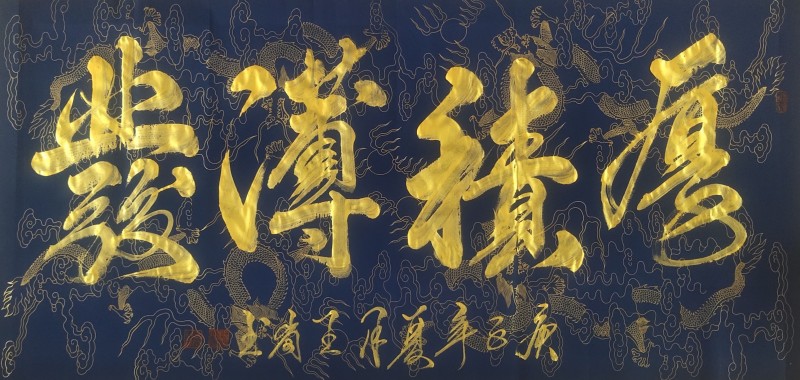 厚積薄發
庚子年夏月王